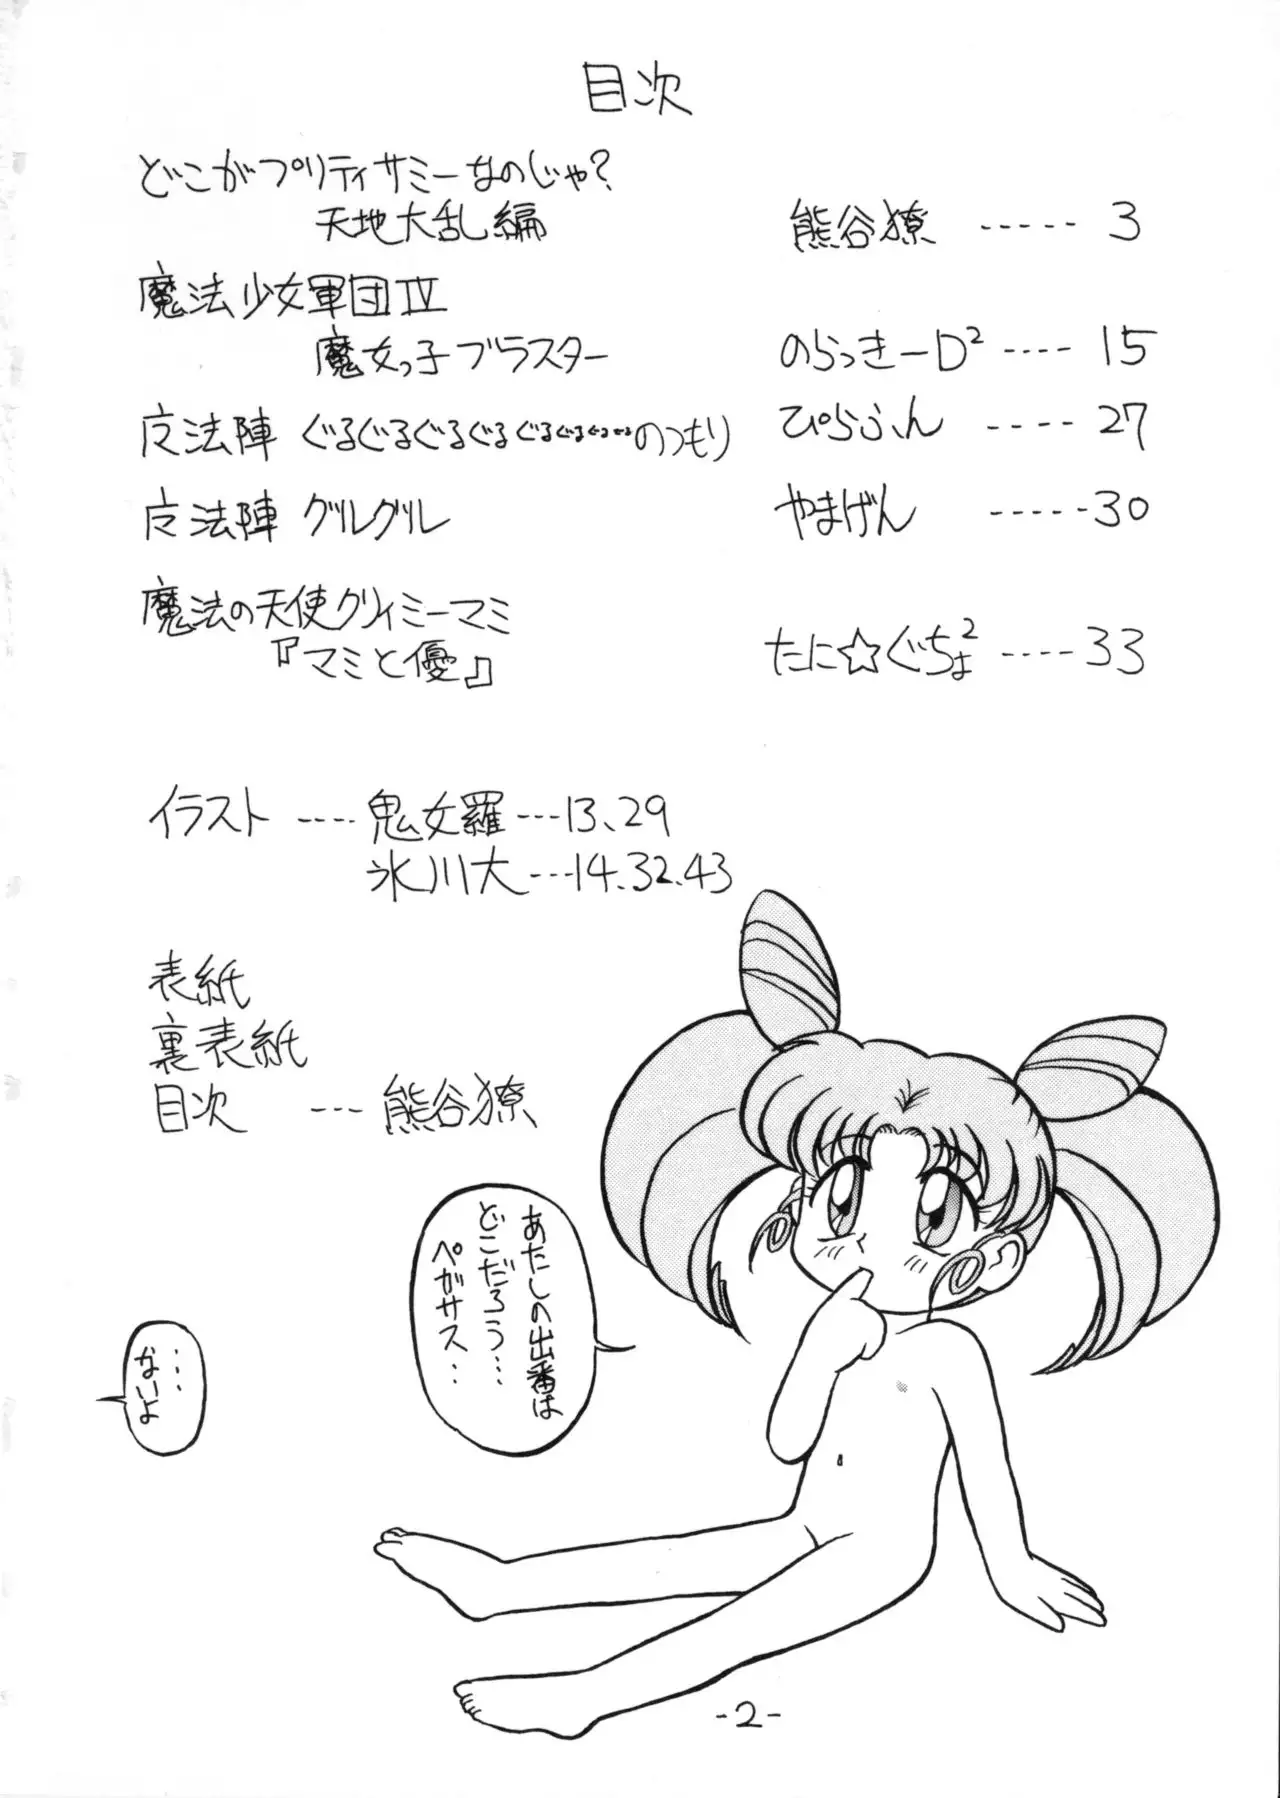 目次
どこがプリティサミーなのじゃ?
天地大乱編 熊谷獠 ----- 3
魔法少女軍団IV
魔女っ子ブラスター のらっきーD² ---- 15
法陣 ぐるぐるぐるぐるぐるぐるぐるぐるのつもり ぴらふん ---- 27
法陣 グルグル やまげん ----- 30
魔法の天使クリィミーマミ
『マミと優』 たに☆ぐちょ² ---- 33
イラスト ---- 鬼女羅 --- 13、29
氷川大 --- 14.32.43
表紙
裏表紙
目次 --- 熊谷獠
あたしの出番は
どこだろう…
ペガサス…
…
ないよ
-2-